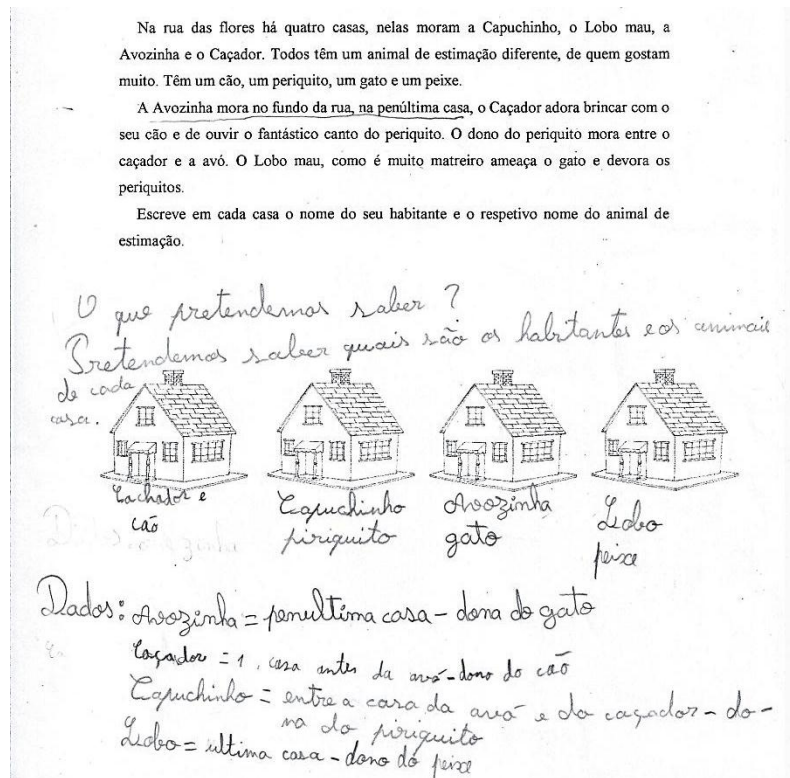 Na rua das flores há quatro casas, nelas moram a Capuchinho, o Lobo mau, a
Avozinha e o Caçador. Todos têm um animal de estimação diferente, de quem gostam
muito. Têm um cão, um periquito, um gato e um peixe.
A Avozinha mora no fundo da rua, na penúltima casa, o Caçador adora brincar com o
seu cão e de ouvir o fantástico canto do periquito. O dono do periquito mora entre o
caçador e a avó. O Lobo mau, como é muito matreiro ameaça o gato e devora os
periquitos.
Escreve em cada casa o nome do seu habitante e o respetivo nome do animal de
estimação.
O que pretendemos saber ?
Pretendemos saber quais são os habitantes e os animais
de cada
casa.
Cachador e
cão
Capuchinho
piriquito
Avozinha
gato
Lobo
peixe
Dados: Avozinha = penultima casa - dona do gato
Caçador = 1, casa antes da avó - dono do cão
Capuchinho = entre a casa da avó e do caçador - do-
na do piriquito
Lobo = ultima casa - dono do peixe